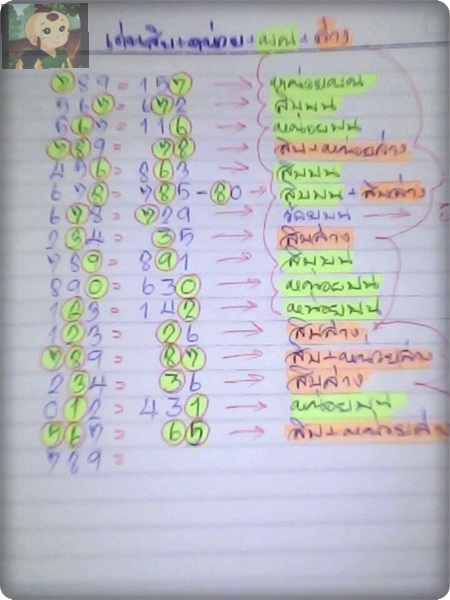 เด่นสิบ+หน่วย+บน+ล่าง
789 = 157 → หน่อยบน
567 = 672 → สิบบน
567 = 116 → หน่อยบน
789 = 78 → สิบ+หน่อยล่าง
456 = 863 → สิบบน
678 = 785-80 → สิบบน + สิบล่าง
678 = 729 → ร้อยบน →
234 = 35 → สิบล่าง
789 = 891 → สิบบน
890 = 630 → หน่อยบน
123 = 142 → หน่อยบน
123 = 26 → สิบล่าง
789 = 87 → สิบ+หน่วยล่าง
234 = 36 → สิบล่าง
012 = 431 → หน่อยบน
567 = 65 → สิบ+หน่วยล่
789 =